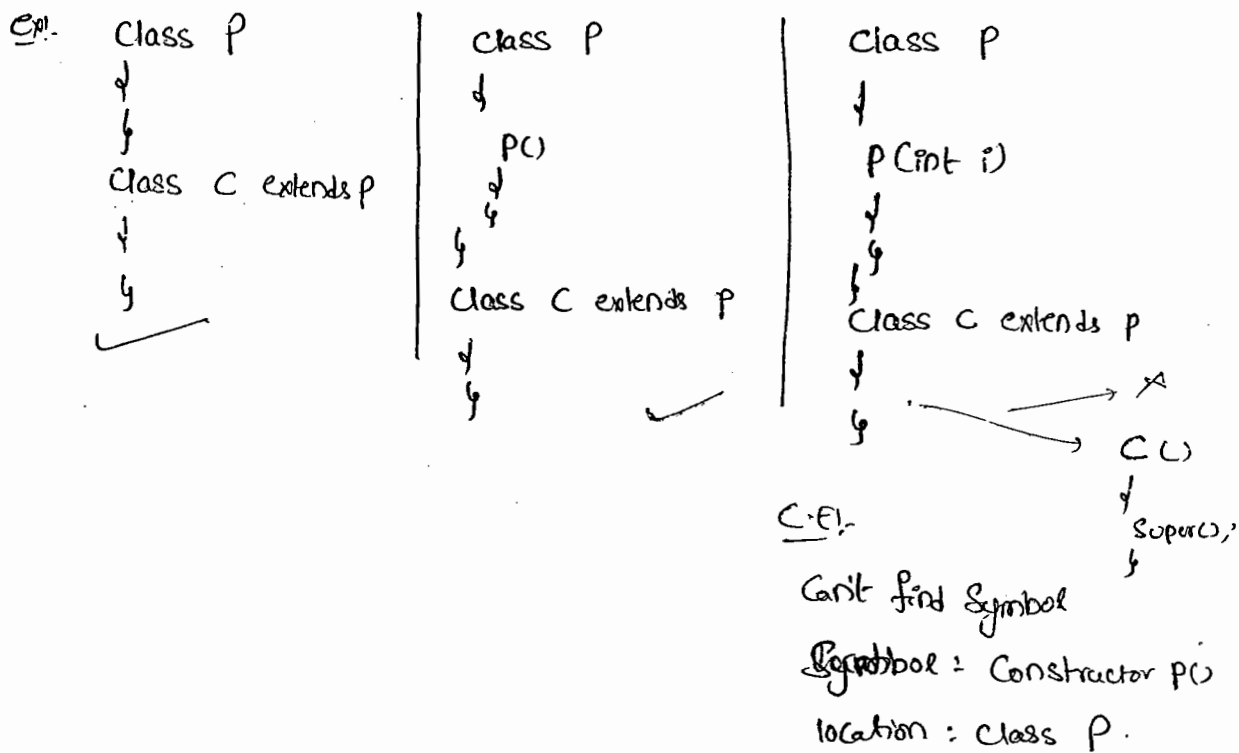 Ex:-
Class P
{
}
Class C extends P
{
}
Class P
{
P()
{
}
}
Class C extends P
{
}
Class P
{
P(int i)
{
}
}
Class C extends P
{
}
C()
{
Super();
}
C.E:-
Can't find Symbol
Symbol : Constructor P()
location : Class P.